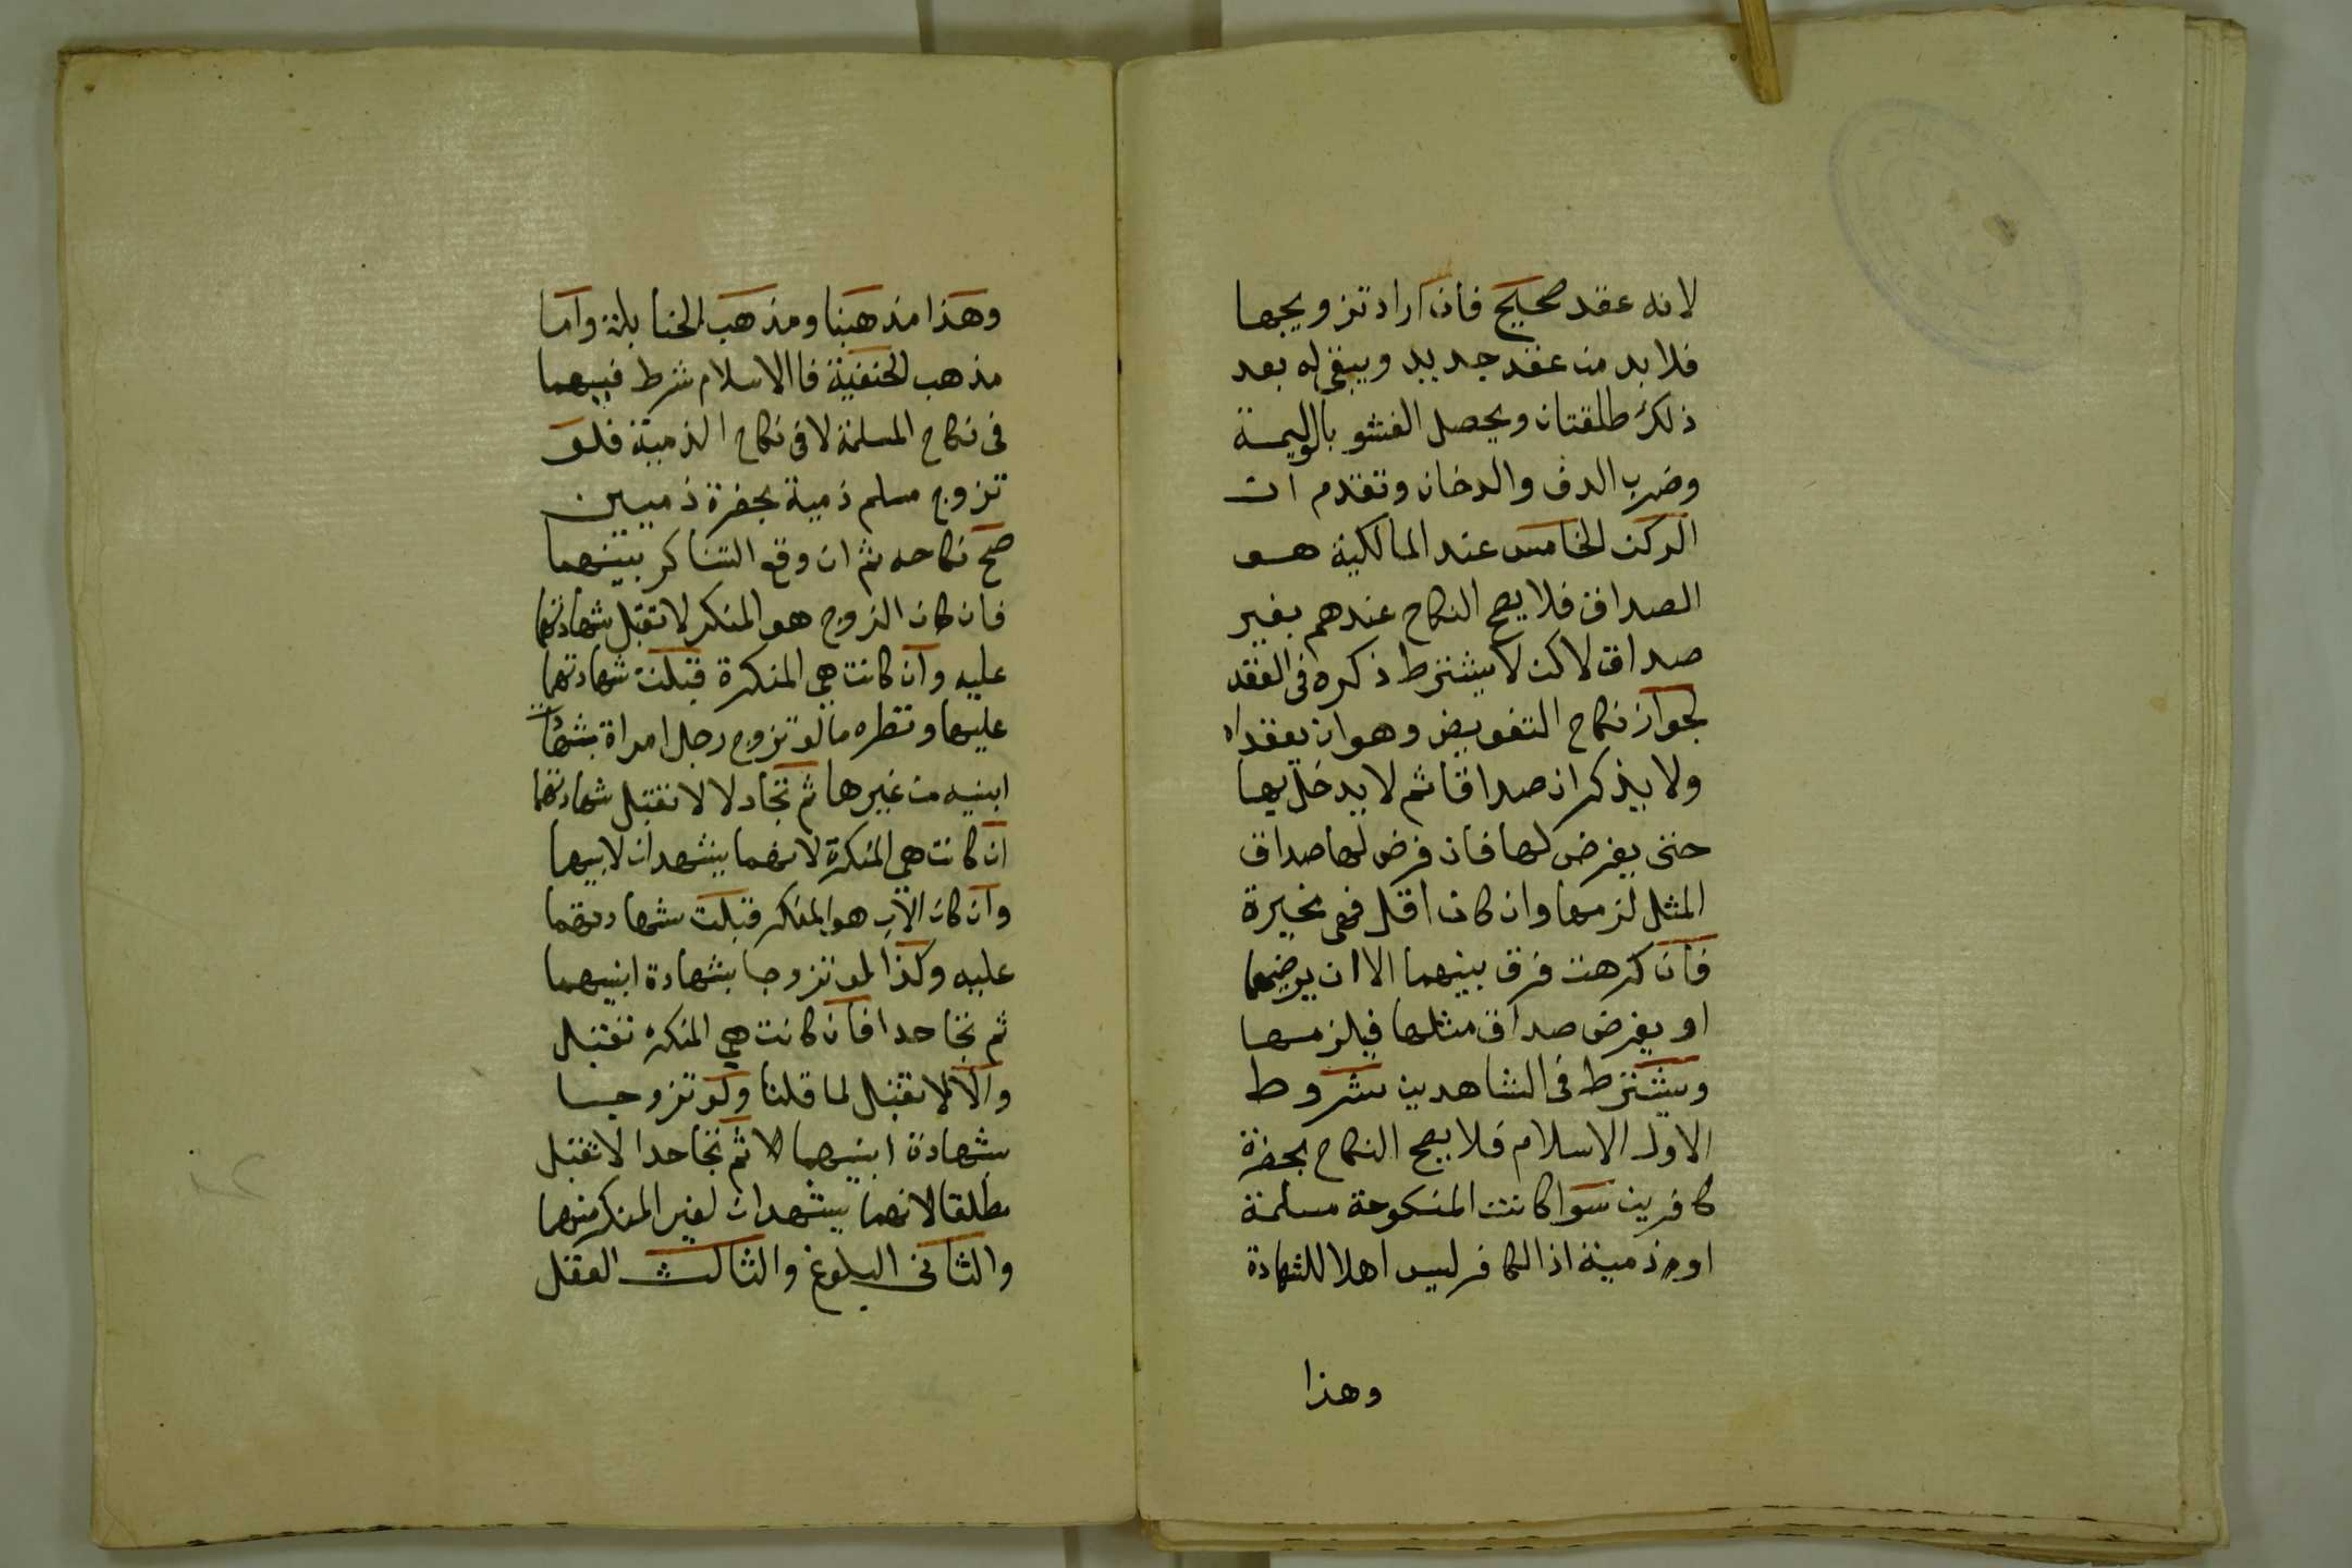 لانه عقد صحيح فان اراد تزويجها
فلا بد من عقد جديد ويبقى له بعد
ذلك طلقتان ويحصل الفشو بالوليمة
وضرب الدف والدخان وتقدم ان
الركن الخامس عند المالكية هو
الصداق فلا يصح النكاح عندهم بغير
صداق لاكن لا يشترط ذكره في العقد
لجواز نكاح التفويض وهو ان يعقدا
ولا يذكران صداقا ثم لا يدخل بها
حتى يفرض لها فان فرض لها صداق
المثل لزمها وان كان اقل فهي مخيرة
فان كرهت فرق بينهما الا ان يرضيها
او يفرض صداق مثلها فيلزمها
ويشترط في الشاهدين شروط
الاول الاسلام فلا يصح النكاح بحضرة
كافرين سوا كانت المنكوحة مسلمة
او ذمية اذ الكافر ليس اهلا للشهادة
وهذا
وهذا مذهبنا ومذهب الحنابلة واما
مذهب الحنفية فاالاسلام شرط فيهما
في نكاح المسلمة لا في نكاح الذمية فلو
تزوج مسلم ذمية بحضرة ذميين
صح نكاحه ثم ان وقع التناكر بينهما
فان كان الزوج هو المنكر لا تقبل شهادتهما
عليه وان كانت هي المنكرة قبلت شهادتهما
عليها ونظره ما لو تزوج رجل امراة بشهادة
ابنيه من غيرها ثم تجادلا لا تقبل شهادتهما
ان كانت هي المنكرة لانهما يشهدان لابيها
وان كان الاب هو المنكر قبلت شهادتهما
عليه وكذا لو تزوجا بشهادة ابنيها
ثم تجاحدا فان كانت هي المنكره تقبل
والا لا تقبل لما قلنا ولو تزوجا
بشهادة ابنيهما ثم تجاحدا لا تقبل
مطلقا لانهما يشهدان لغير المنكر منهما
والثاني البلوغ والثالث العقل